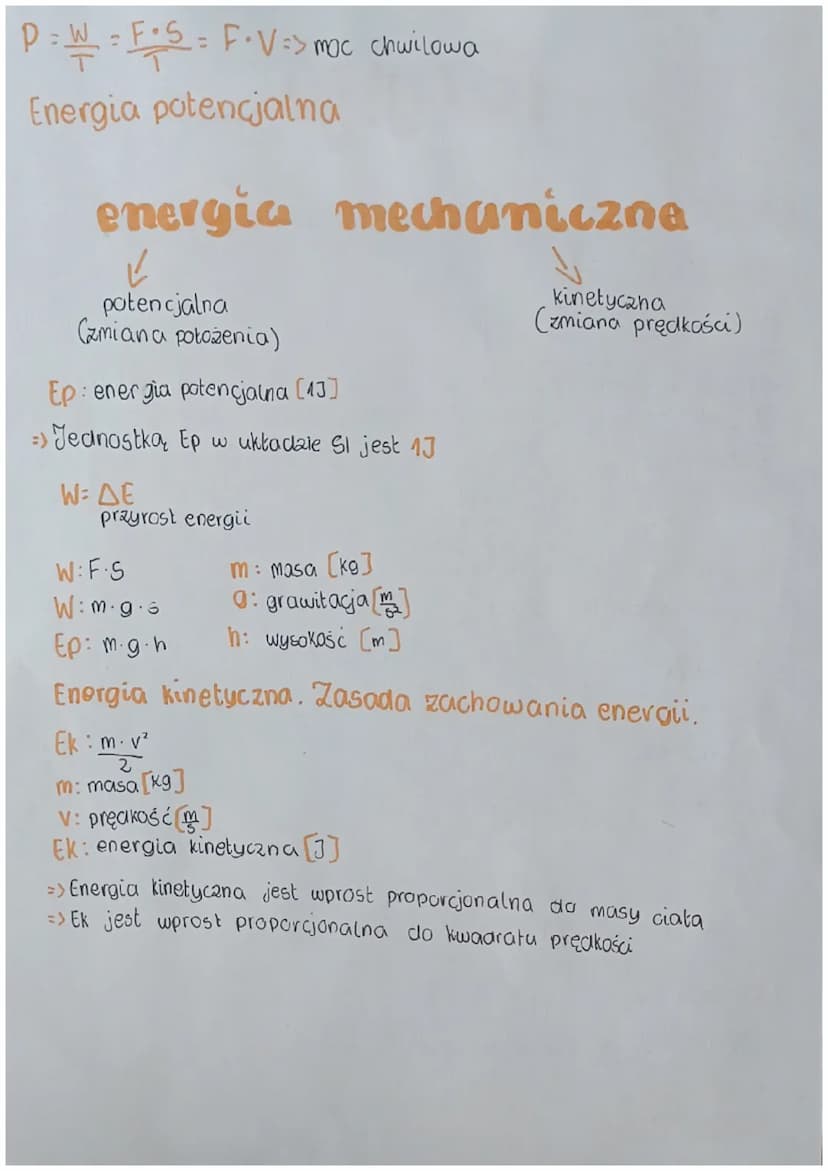 P = W/T = F·S/T = F·V => moc chwilowa
Energia potencjalna
energia mechaniczna
potencjalna
(zmiana położenia)
kinetyczna
(zmiana prędkości)
Ep: energia potencjalna [1J]
=> Jednostką Ep w układzie SI jest 1J
W= ΔE
przyrost energii
W: F·S
m: masa [kg]
W: m·g·s
g: grawitacja [m/s²]
Ep: m·g·h
h: wysokość [m]
Energia kinetyczna. Zasada zachowania energii.
Ek: m·v²/2
m: masa [kg]
v: prędkość [m/s]
Ek: energia kinetyczna [J]
=> Energia kinetyczna jest wprost proporcjonalna do masy ciała
=> Ek jest wprost proporcjonalna do kwadratu prędkości